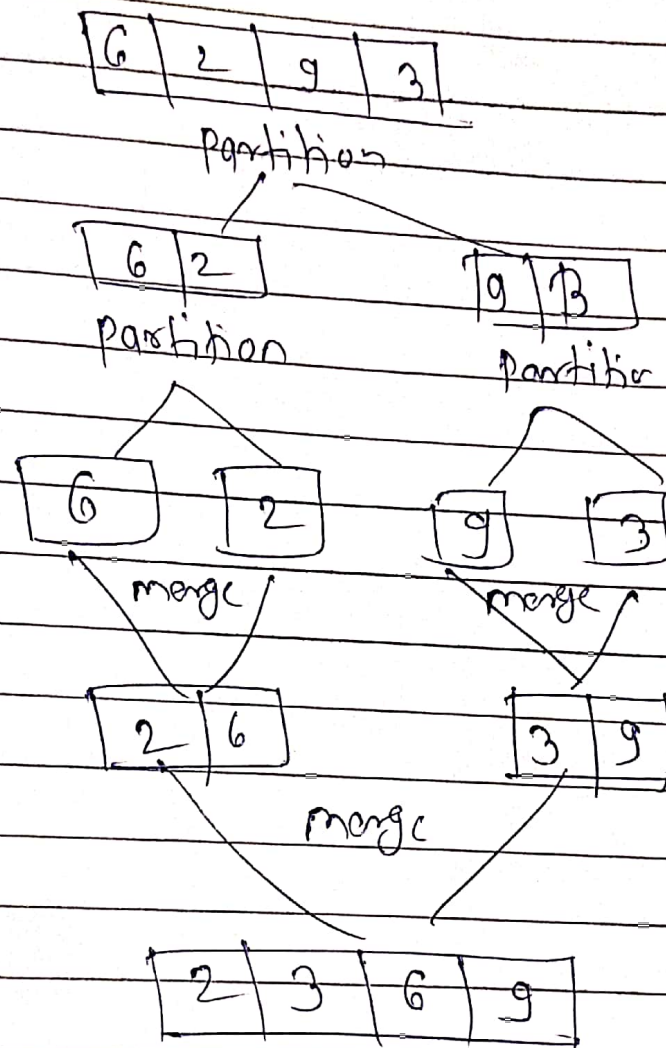 6 2 9 3
Partition
6 2 9 3
Partition Partitio
6 2 9 3
merge merge
2 6 3 9
merge
2 3 6 9